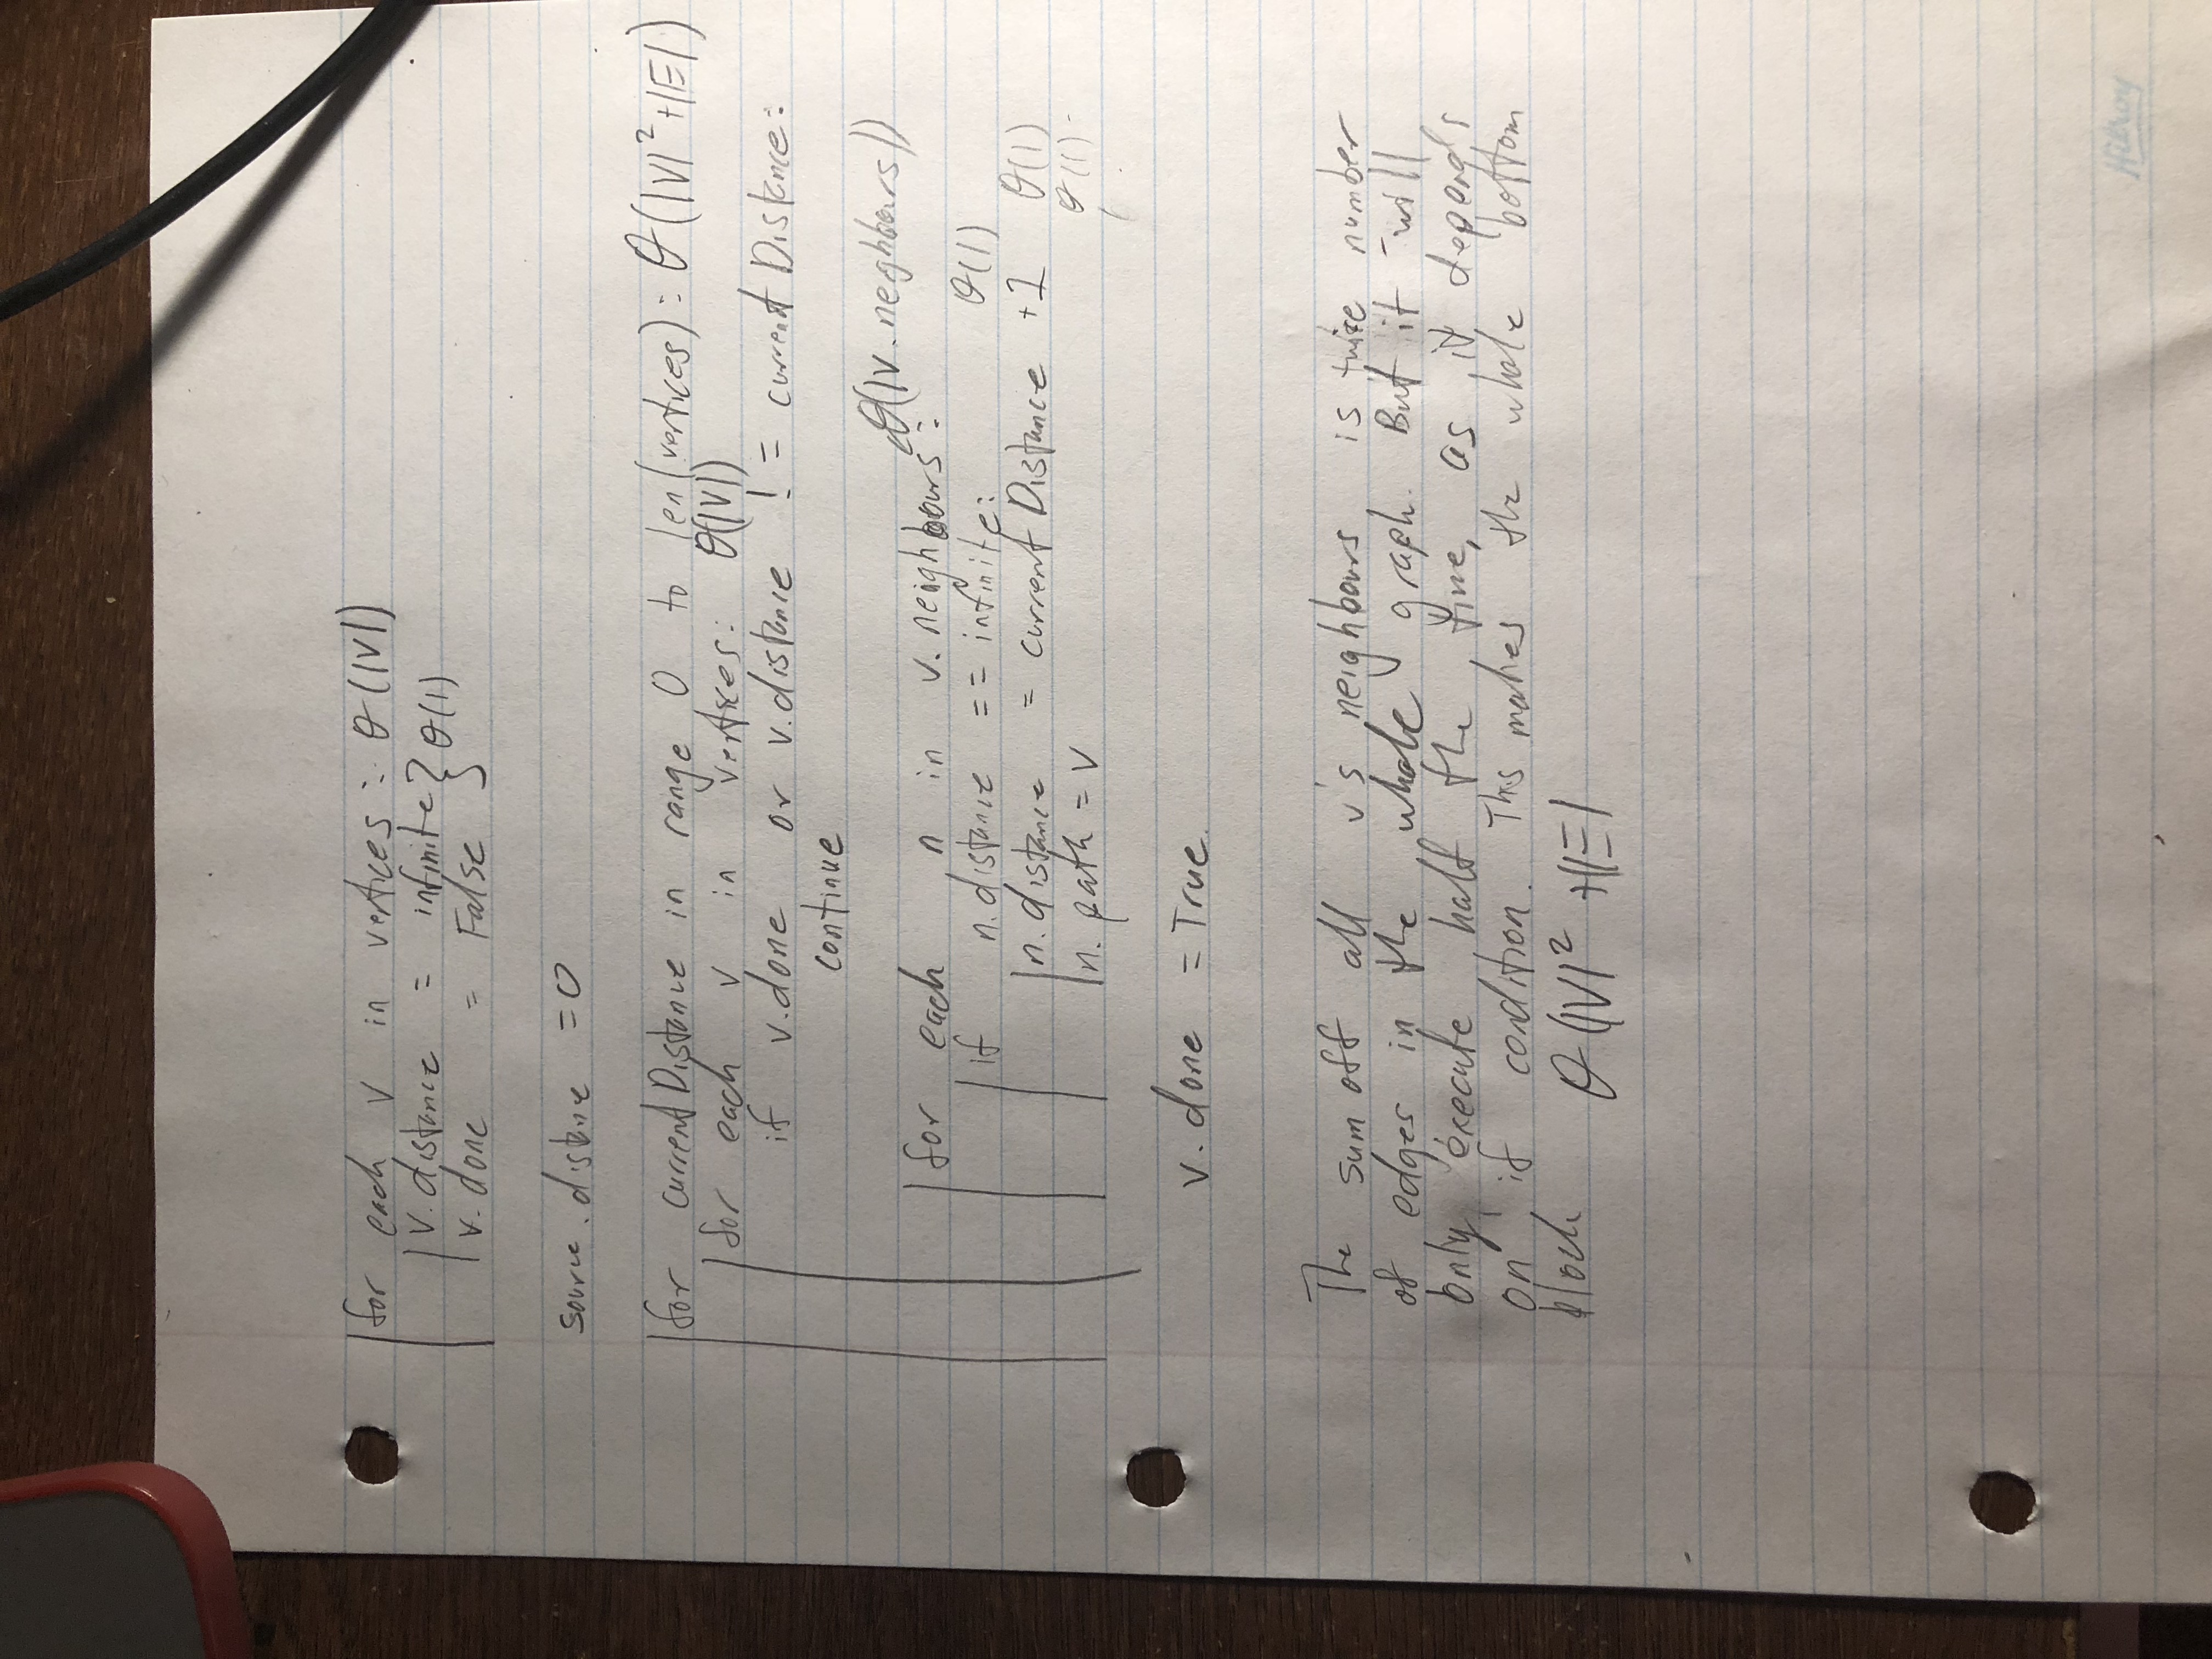 for each v in vertices: θ(|V|)
v.distance = infinite } θ(1)
v.done = False
source.distance = 0
for currentDistance in range 0 to len(vertices): θ(|V|² + |E|)
for each v in vertices: θ(|V|)
if v.done or v.distance != currentDistance:
continue
θ(|v.neighbours|)
for each n in v.neighbours:
if n.distance == infinite: θ(1)
n.distance = currentDistance + 1 θ(1)
n.path = v θ(1)
v.done = True.
The sum off all v's neighbours is twice number
of edges in the whole graph. But it will
only execute half the time, as it depends
on if condition. This makes the whole bottom
block θ(|V|² + |E|
Hilroy